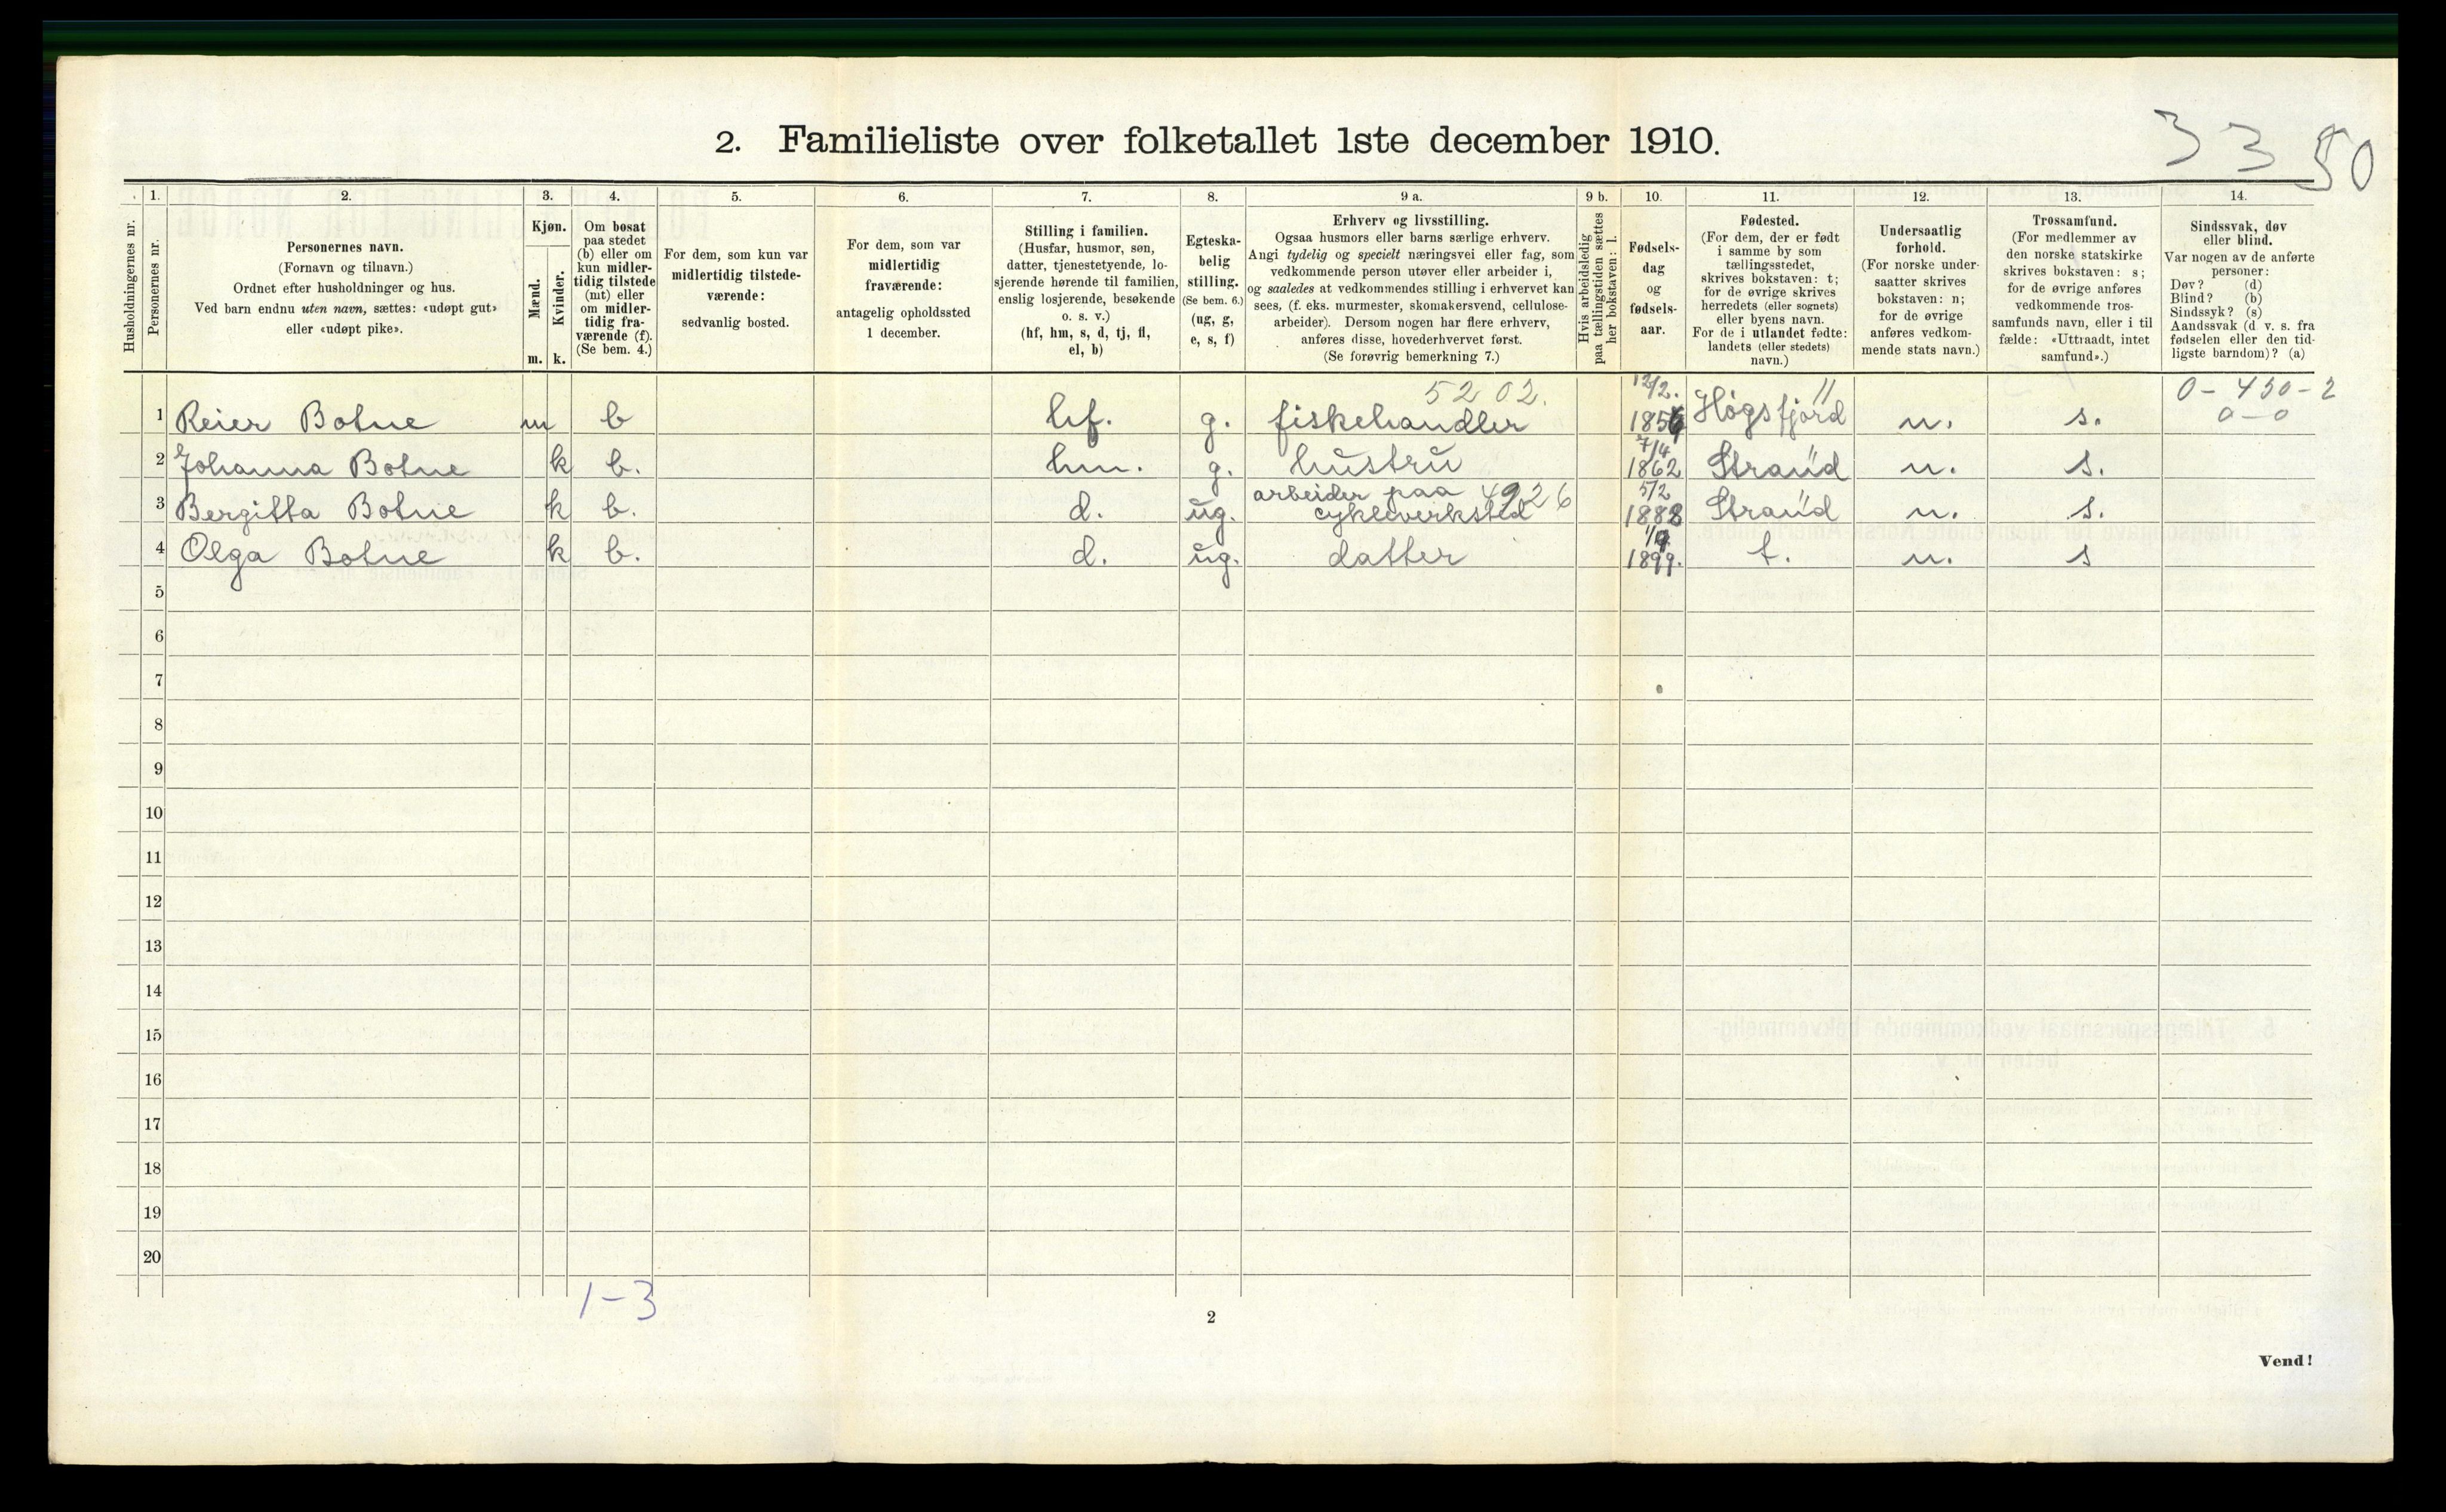 33 50
2. Familieliste over folketallet 1ste december 1910.
Husholdningernes nr.
1. Personernes nr.
2. Personernes navn.
(Fornavn og tilnavn.)
Ordnet efter husholdninger og hus.
Ved barn endnu uten navn, sættes: «udøpt gut»
eller «udøpt pike».
3. Kjøn.
Mænd. m.
Kvinder. k.
4. Om bosat
paa stedet
(b) eller om
kun midler-
tidig tilstede
(mt) eller
om midler-
tidig fra-
værende (f).
(Se bem. 4.)
5. For dem, som kun var
midlertidig tilstede-
værende:
sedvanlig bosted.
6. For dem, som var
midlertidig
fraværende:
antagelig opholdssted
1 december.
7. Stilling i familien.
(Husfar, husmor, søn,
datter, tjenestetyende, lo-
sjerende hørende til familien,
enslig losjerende, besøkende
o. s. v.)
(hf, hm, s, d, tj, fl,
el, b)
8. Egteska-
belig
stilling.
(Se bem. 6.)
(ug, g,
e, s, f)
9 a. Erhverv og livsstilling.
Ogsaa husmors eller barns særlige erhverv.
Angi tydelig og specielt næringsvei eller fag, som
vedkommende person utøver eller arbeider i,
og saaledes at vedkommendes stilling i erhvervet kan
sees, (f. eks. murmester, skomakersvend, cellulose-
arbeider). Dersom nogen har flere erhverv,
anføres disse, hovederhvervet først.
(Se forøvrig bemerkning 7.)
9 b. Hvis arbeidsledig
paa tællingstiden sættes
her bokstaven: l.
10. Fødsels-
dag
og
fødsels-
aar.
11. Fødested.
(For dem, der er født
i samme by som
tællingsstedet,
skrives bokstaven: t;
for de øvrige skrives
herredets (eller sognets)
eller byens navn.
For de i utlandet fødte:
landets (eller stedets)
navn.)
12. Undersaatlig
forhold.
(For norske under-
saatter skrives
bokstaven: n;
for de øvrige
anføres vedkom-
mende stats navn.)
13. Trossamfund.
(For medlemmer av
den norske statskirke
skrives bokstaven: s;
for de øvrige anføres
vedkommende tros-
samfunds navn, eller i til
fælde: «Uttraadt, intet
samfund».)
14. Sindssvak, døv
eller blind.
Var nogen av de anførte
personer:
Døv? (d)
Blind? (b)
Sindssyk? (s)
Aandssvak (d. v. s. fra
fødselen eller den tid-
ligste barndom)? (a)
5202. 12/2. 11 0-450-2
1 Reier Botne m b hf. g. fiskehandler Høgsfjord n. s. 0-0
7/4
2 Johanna Botne k b. hm. g. hustru 1862 Strand n. s.
arbeider paa 4926 5/2
3 Bergitta Botne k b. d. ug. cykleverksted 1888 Strand n. s.
4 Olga Botne k b. d. ug. datter 1899. t. n. s
5
6
7
8
9
10
11
12
13
14
15
16
17
18
19
20
1-3
2
Vend!